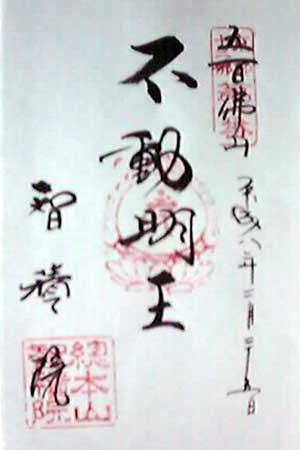 五百佛山 平成八年 月 日
不動明王
智積院
總本山
智積院